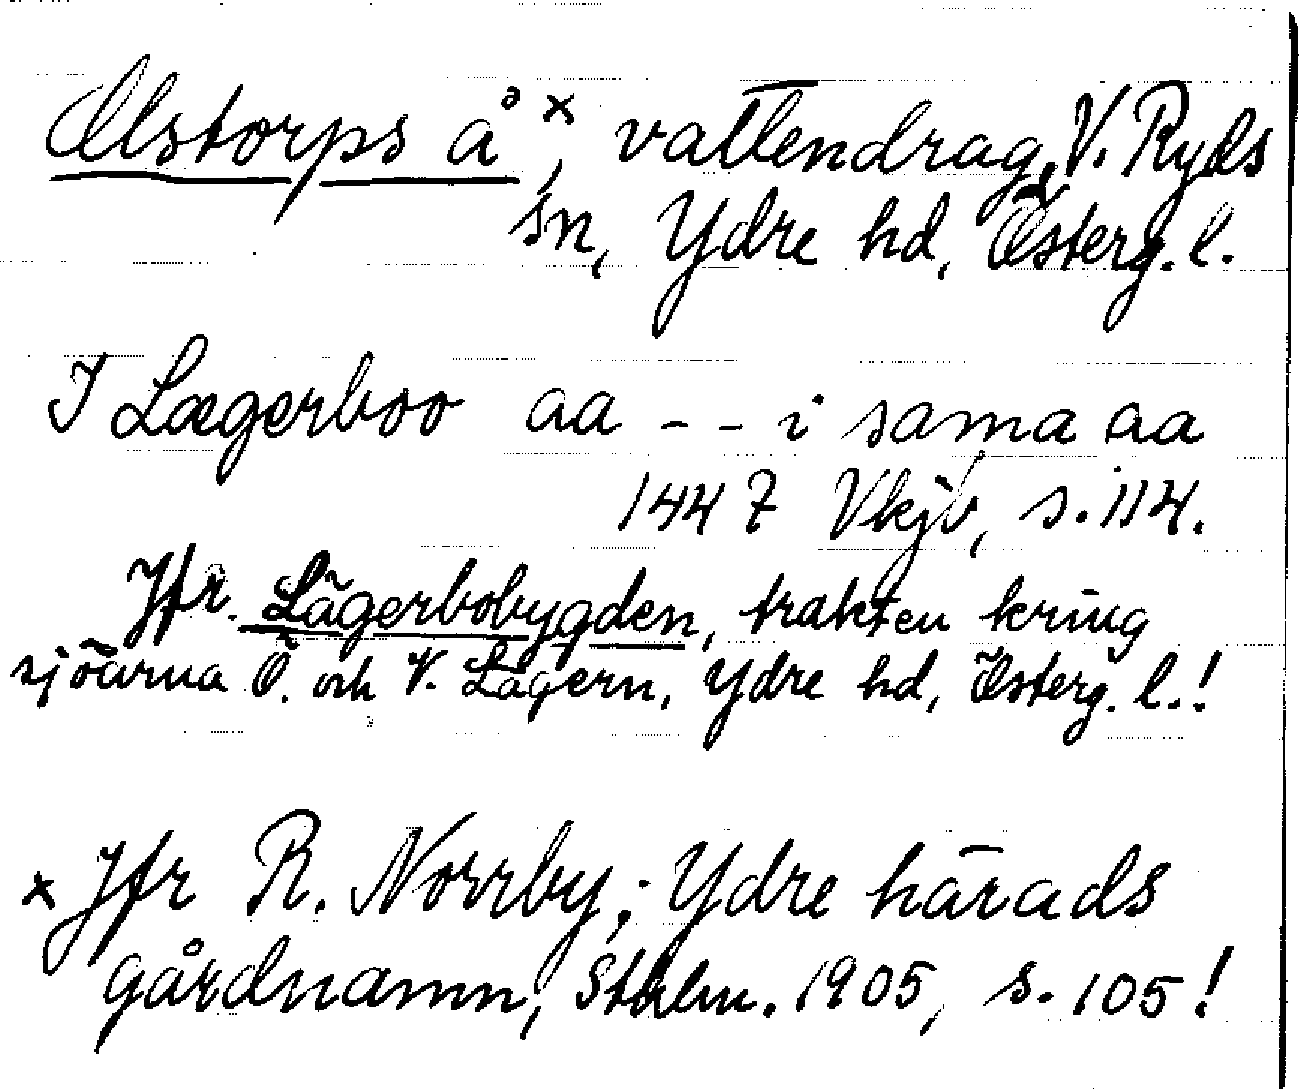 Olstorps å ×, vattendrag, V. Ryds
sn, Ydre hd, Österg. l.
I Lægerboo aa -- i sama aa
1447 Vkjb, s. 114.
Jfr. Lägerbobygden, trakten kring
sjöarna Ö. och V. Lägern, Ydre hd, Österg. l.!
× Jfr R. Norrby, Ydre härads
gårdnamn, Sthlm. 1905, s. 105!